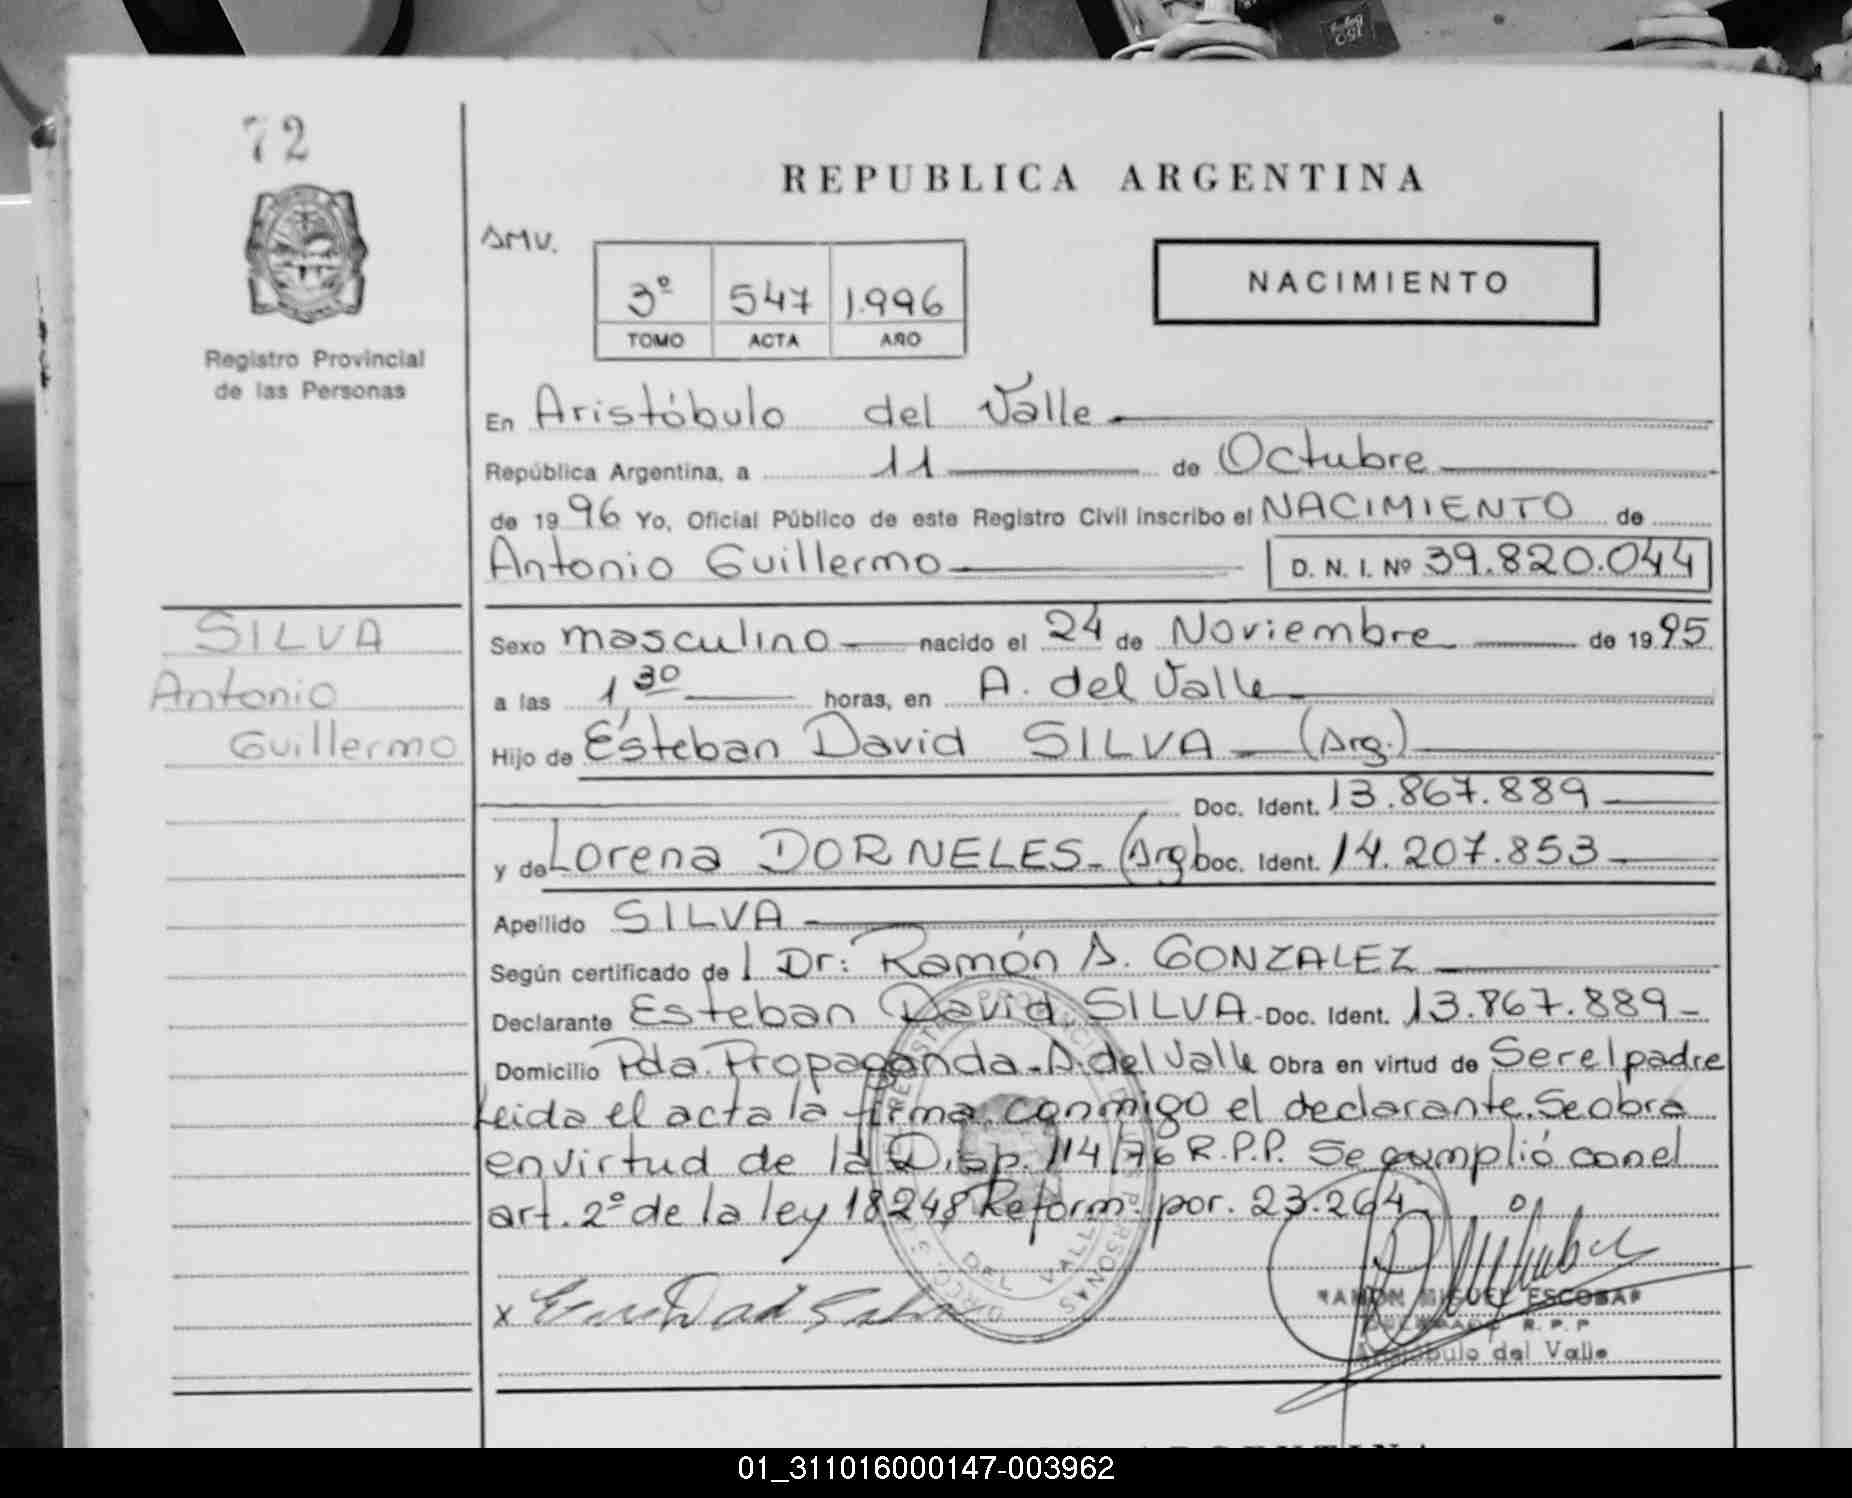 72
REPUBLICA ARGENTINA
AMV.
3º 547 1.996
TOMO ACTA AÑO
NACIMIENTO
Registro Provincial
de las Personas
En Aristóbulo del Valle
República Argentina, a 11 de Octubre
de 1996 Yo, Oficial Público de este Registro Civil inscribo el NACIMIENTO de
Antonio Guillermo D. N. I. Nº 39.820.044
SILVA
Antonio
Guillermo
Sexo masculino nacido el 24 de Noviembre de 1995
a las 1,30 horas, en A. del Valle
Hijo de Esteban David SILVA (Arg.)
Doc. Ident. 13.867.889
y de Lorena DORNELES (Arg) Doc. Ident. 14.207.853
Apellido SILVA
Según certificado de l Dr: Ramón A. GONZALEZ
Declarante Esteban David SILVA Doc. Ident. 13.867.889
Domicilio Pda. Propaganda A. del Valle Obra en virtud de Ser el padre
Leida el acta la firma conmigo el declarante. Se obra
en virtud de la Disp. 114/76 R.P.P. Se cumplió con el
art. 2º de la ley 18248 Reform. por. 23.264
x
RAMON MIGUEL ESCOBAR
R. P. P
Aristóbulo del Valle
01_311016000147-003962